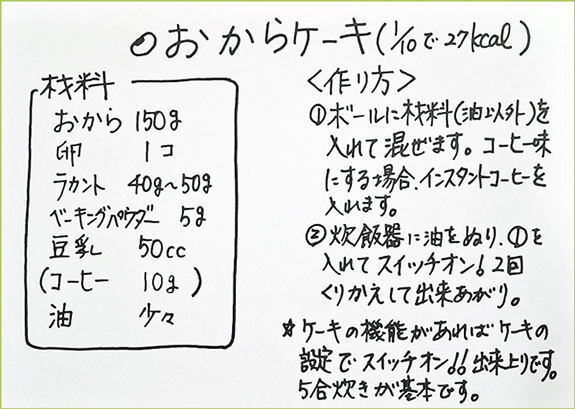 ○おからケーキ(1/10で27kcal)
材料
おから 150g
卵 1コ
ラカント 40g~50g
ベーキングパウダー 5g
豆乳 50cc
(コーヒー 10g)
油 少々
<作り方>
①ボールに材料(油以外)を
入れて混ぜます。コーヒー味
にする場合、インスタントコーヒーを
入れます。
②炊飯器に油をぬり、①を
入れてスイッチオン!2回
くりかえして出来あがり。
☆ケーキの機能があればケーキの
設定でスイッチオン!!出来上りです。
5合炊きが基本です。